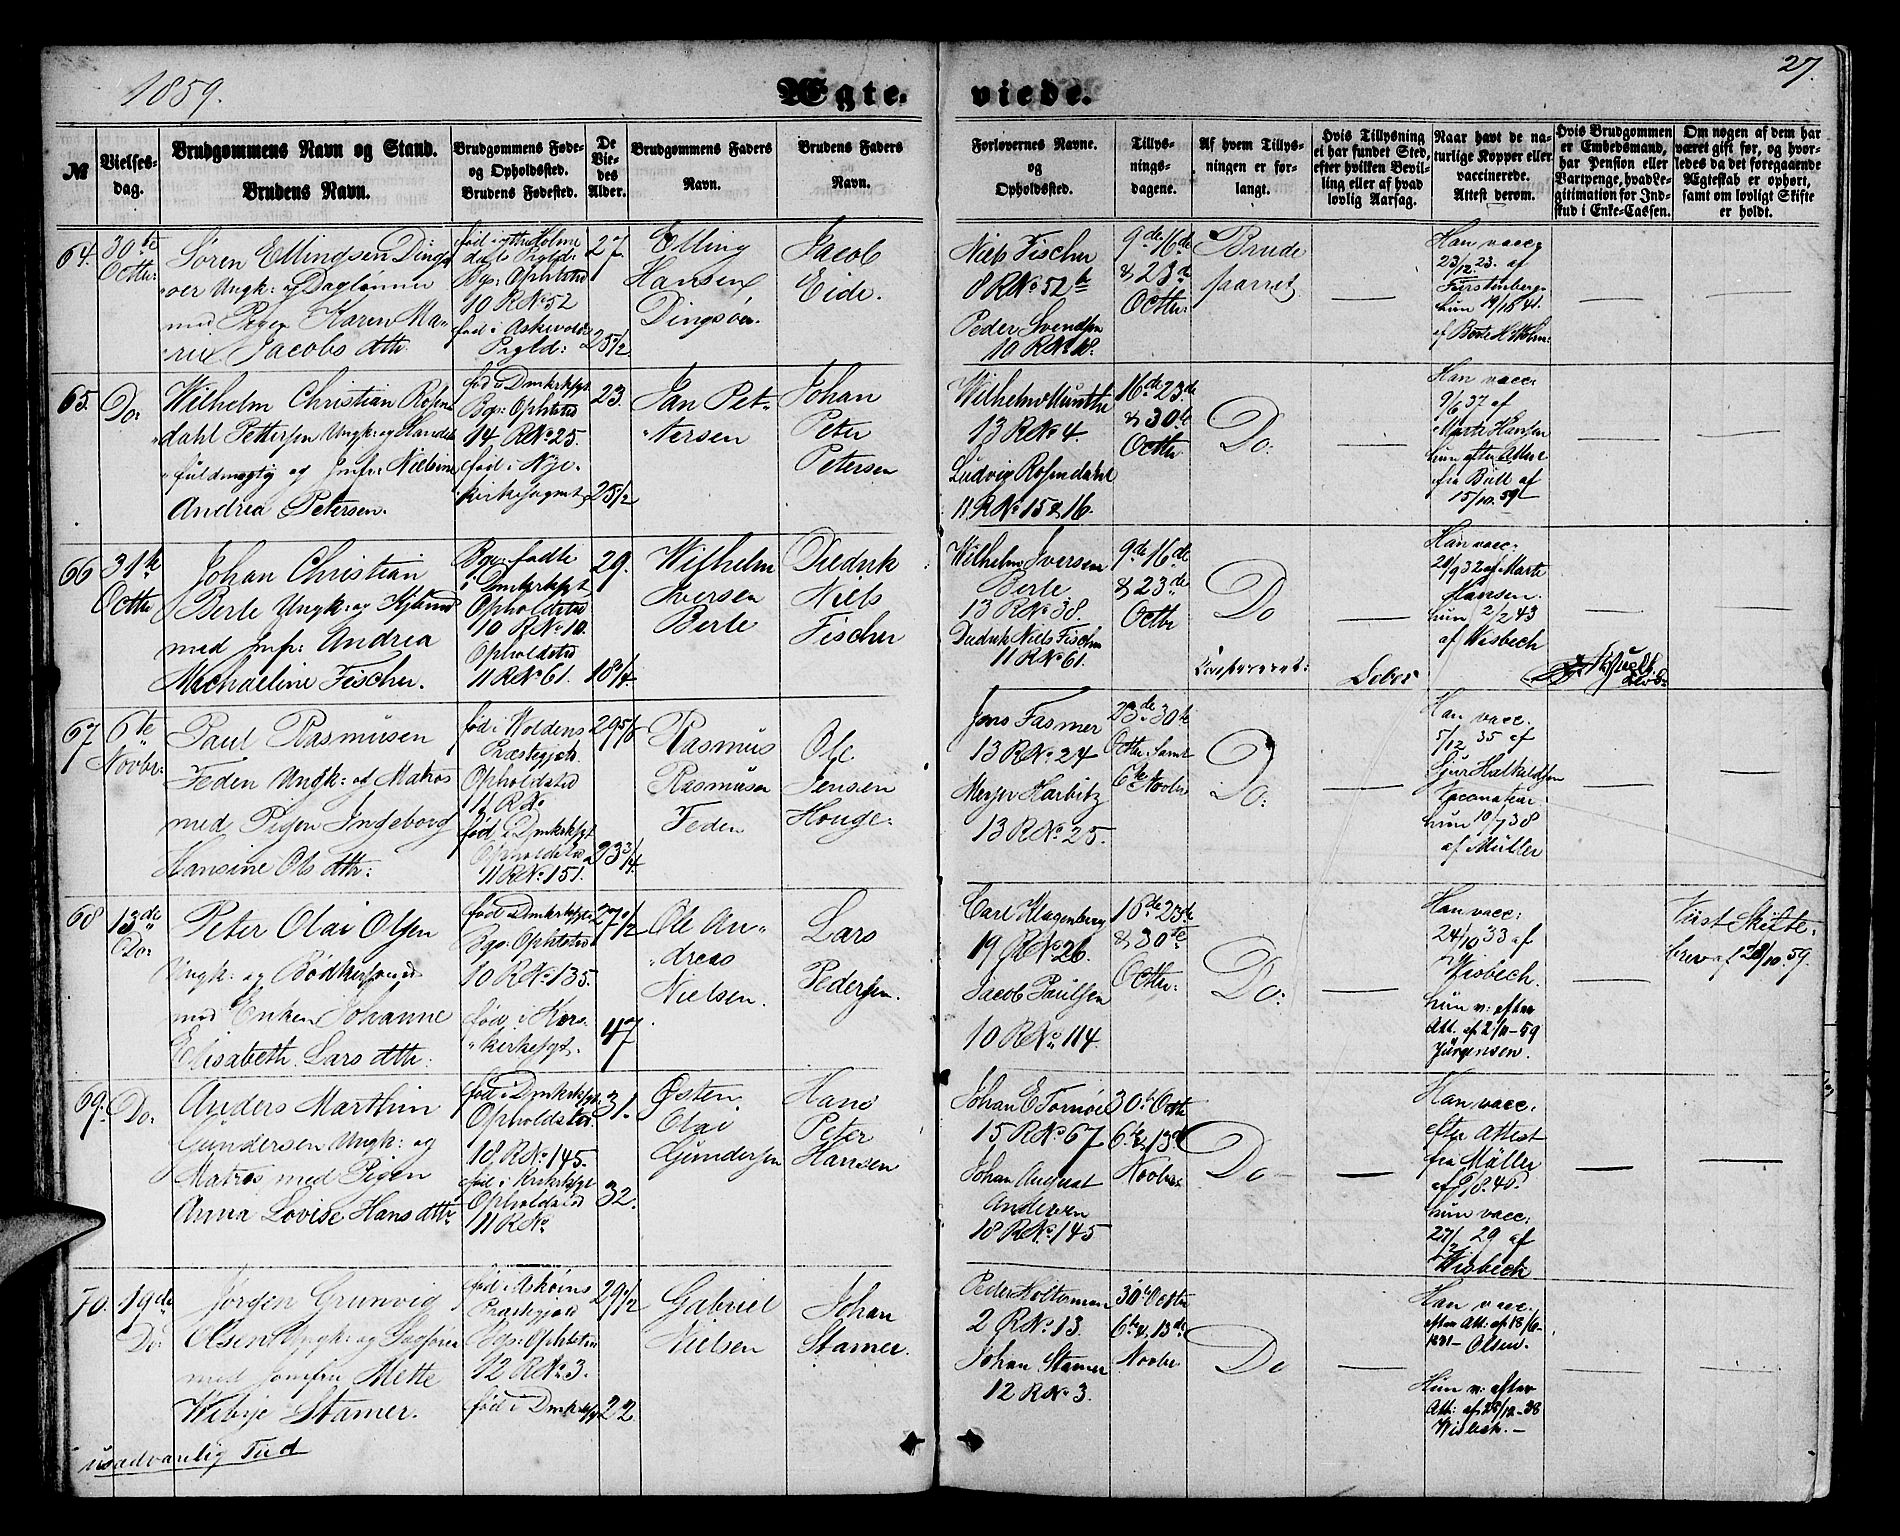 1859.
Ægte-
viede.
27.
№
Vielses-
dag.
Brudgommens Navn og Stand.
Brudens Navn.
Brudgommens Føde-
og Opholdssted.
Brudens Fødested.
De
Vie-
des
Alder.
Brudgommens Faders
Navn.
Brudens Faders
Navn.
Forlovernes Navne.
og
Opholdssted.
Tillys-
nings-
dagene.
Af hvem Tillys-
ningen er for-
langt.
Hvis Tillysning
ei har fundet Sted,
efter hvilken Bevil-
ling eller af hvad
lovlig Aarsag.
Naar havt de na-
turlige Kopper eller
vaccinerede.
Attest derom.
Hvis Brudgommen
er Embedsmand,
har Pension eller
Vartpenge, hvad Le-
gitimation for Ind-
skud i Enke-Cassen.
Om nogen af dem har
været gift før, og hvor-
ledes da det foregaaende
Ægteskab er ophørt,
samt om lovligt Skifte
er holdt.
64.
30te
Octbr:
Søren Ellingsen Dings
øer Ungk: og Daglønner
med Pigen Karen Ma-
rie Jacobs dtr.
Prgld:
Bgs: Ophsted
10 R No 52
fød i Askevold
Prgld:
27
25 1/2
Elling
Hansen
Dingsøer
Jacob
Eide.
Niels Fischer
8 R No 52 b
Peder Svendsen
10 R No 18.
9de 16de
& 23de
Octbr:
Brude
parret
Han vacc.
23/12 23. af
Fürstenberg
hun 19/10 41.
af
65.
Do:
Wilhelm Christian Rosen
dahl Pettersen Ungk: og Handels
fuldmægtig og Jmfr: Nielsine
Andrea Petersen.
fød i Dmkrksgt
Bgs: Ophsted
14 R No 25.
fød i Nye-
kirkesogent
23.
25 1/2
Jan Pet-
tersen
Johan
Peter
Petersen
Wilhelm Munthe
13 R No 4
Ludvig Rosendahl
11 R No 15 & 16.
16de 23de
& 30te
Octbr
Do:
Han vacc.
9/6 37 af
Marte Hansen
hun efter Attest
fra Bull af
15/10 59
66
31te
Octbr
Johan Christian
Berle Ungk: og
med Jmfr: Andrea
Michaeline Fischer.
Bge fødte
i Dmkrksgt
Opholdsted
10 R No 10.
Opholdsted
11 R No 61.
29.
18 3/4.
Wilhelm
Iversen
Berle
Diedrik
Niels
Fischer
Wilhelm Iversen
Berle
13 R No 38.
Diedrik Niels Fischer
11 R No 61.
9de 16de
& 23de
Octbr
Do
Han vacc.
af Marte
Hansen.
hun 2/2 43
af Wisbech
67
6te
Novbr:
Paul Rasmüsen
Feden Ungk: og Matros
med Pigen Ingeborg
Hansine Ols dtr:
fød i Holdens
Præstegjeld.
Opholdsted
11 R No
fød i Dmkrksgt
Opholdsted
11 R No 151.
29 5/6
23 3/4.
Rasmüs
Rasmüsen
Feden
Ole
Jensen
Houge.
Jens Fasmer
13 R No 24
Meyer Harbitz
13 R No 25.
23de 30te
Octbr. samt
6te Novbr
Do:
Han vacc.
5/12 35 af
Sjur
Vaccinateur
hun 10/7 38
af Müller
68
13de
Do:
Peter Olai Olsen
Ungk: og Bødkersvend
med Enken Johanne
Elisabeth Lars dtr:
fød i Dmkrksgt
Bgs: Ophsted
10 R No 135.
fød i Kors-
kirkesgt.
27 1/2
47
Ole An-
dreas
Nielsen.
Lars
Pedersen.
Carl Klagenberg
19 R No 26.
Jacob Paulsen
10 R No 114.
16de 23de
& 30te
Octbr:
Do:
Han vacc:
24/10 33 af
Wisbech.
Hun v: efter
Att. af 2/11-59
Jürgensen.
Viist Skifte-
brev af 28/10 59.
69.
Do:
Anders Marthin
Gündersen Ungk: og
Matros med Pigen
Anna Lovise Hans dtr.
fød i Dmkrksgt
Opholdsted
18 R No 145.
Opholdsted
11 R No
31.
32.
Østen
Olai
Gündersen
Hans
Peter
Hansen
Johan E Tornöe
15 R No 67
Johan August
Andersen
18 R No 145
30te Octbr
6te & 13de
Novbr.
Do
Han vacc.
efter Attest
fra Müller
af 9/8 40.
hun vacc:
29 af
Wisbech
70.
19de
Do:
Jørgen Grunvig
Olsen Ungk: og
med Jomfru Mette
Wibije Stamer.
fød i Askøens
Præstegjeld
Bgs: Ophsted
12 R No 3.
fød i Dmkrksgt
29 1/2
22
Gabriel
Nielsen
Johan
Stamer.
Peder Holterman
2 R No 13.
Johan Stamer
12 R No 3.
30te Octbr
6te & 13de
Novbr
Do
Han vacc.
efter Att: af 18/6-
1831- Olsen.
Hun v: efter
Att: af 28/12-38
Wisbech.-
usædvanlig Tid